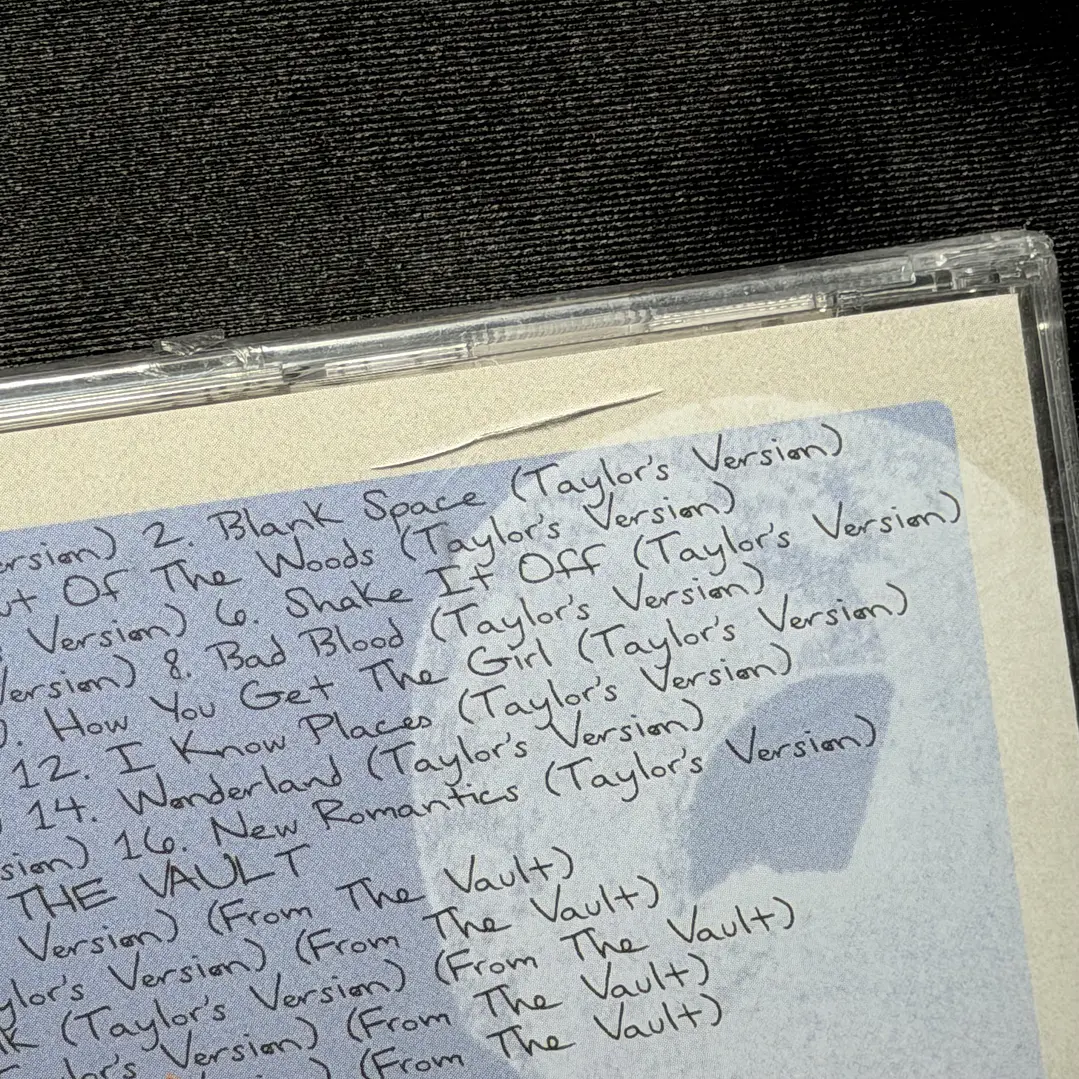 2. Blank Space (Taylor's Version)
Of The Woods (Taylor's Version)
Version) 6. Shake It Off (Taylor's Version)
Version) 8. Bad Blood (Taylor's Version)
How You Get The Girl (Taylor's Version)
12. I Know Places (Taylor's Version)
14. Wonderland (Taylor's Version)
16. New Romantics (Taylor's Version)
THE VAULT
Version) (From The Vault)
Version) (From The Vault)
(Taylor's Version) (From The Vault)
Version) (From The Vault)
(From The Vault)